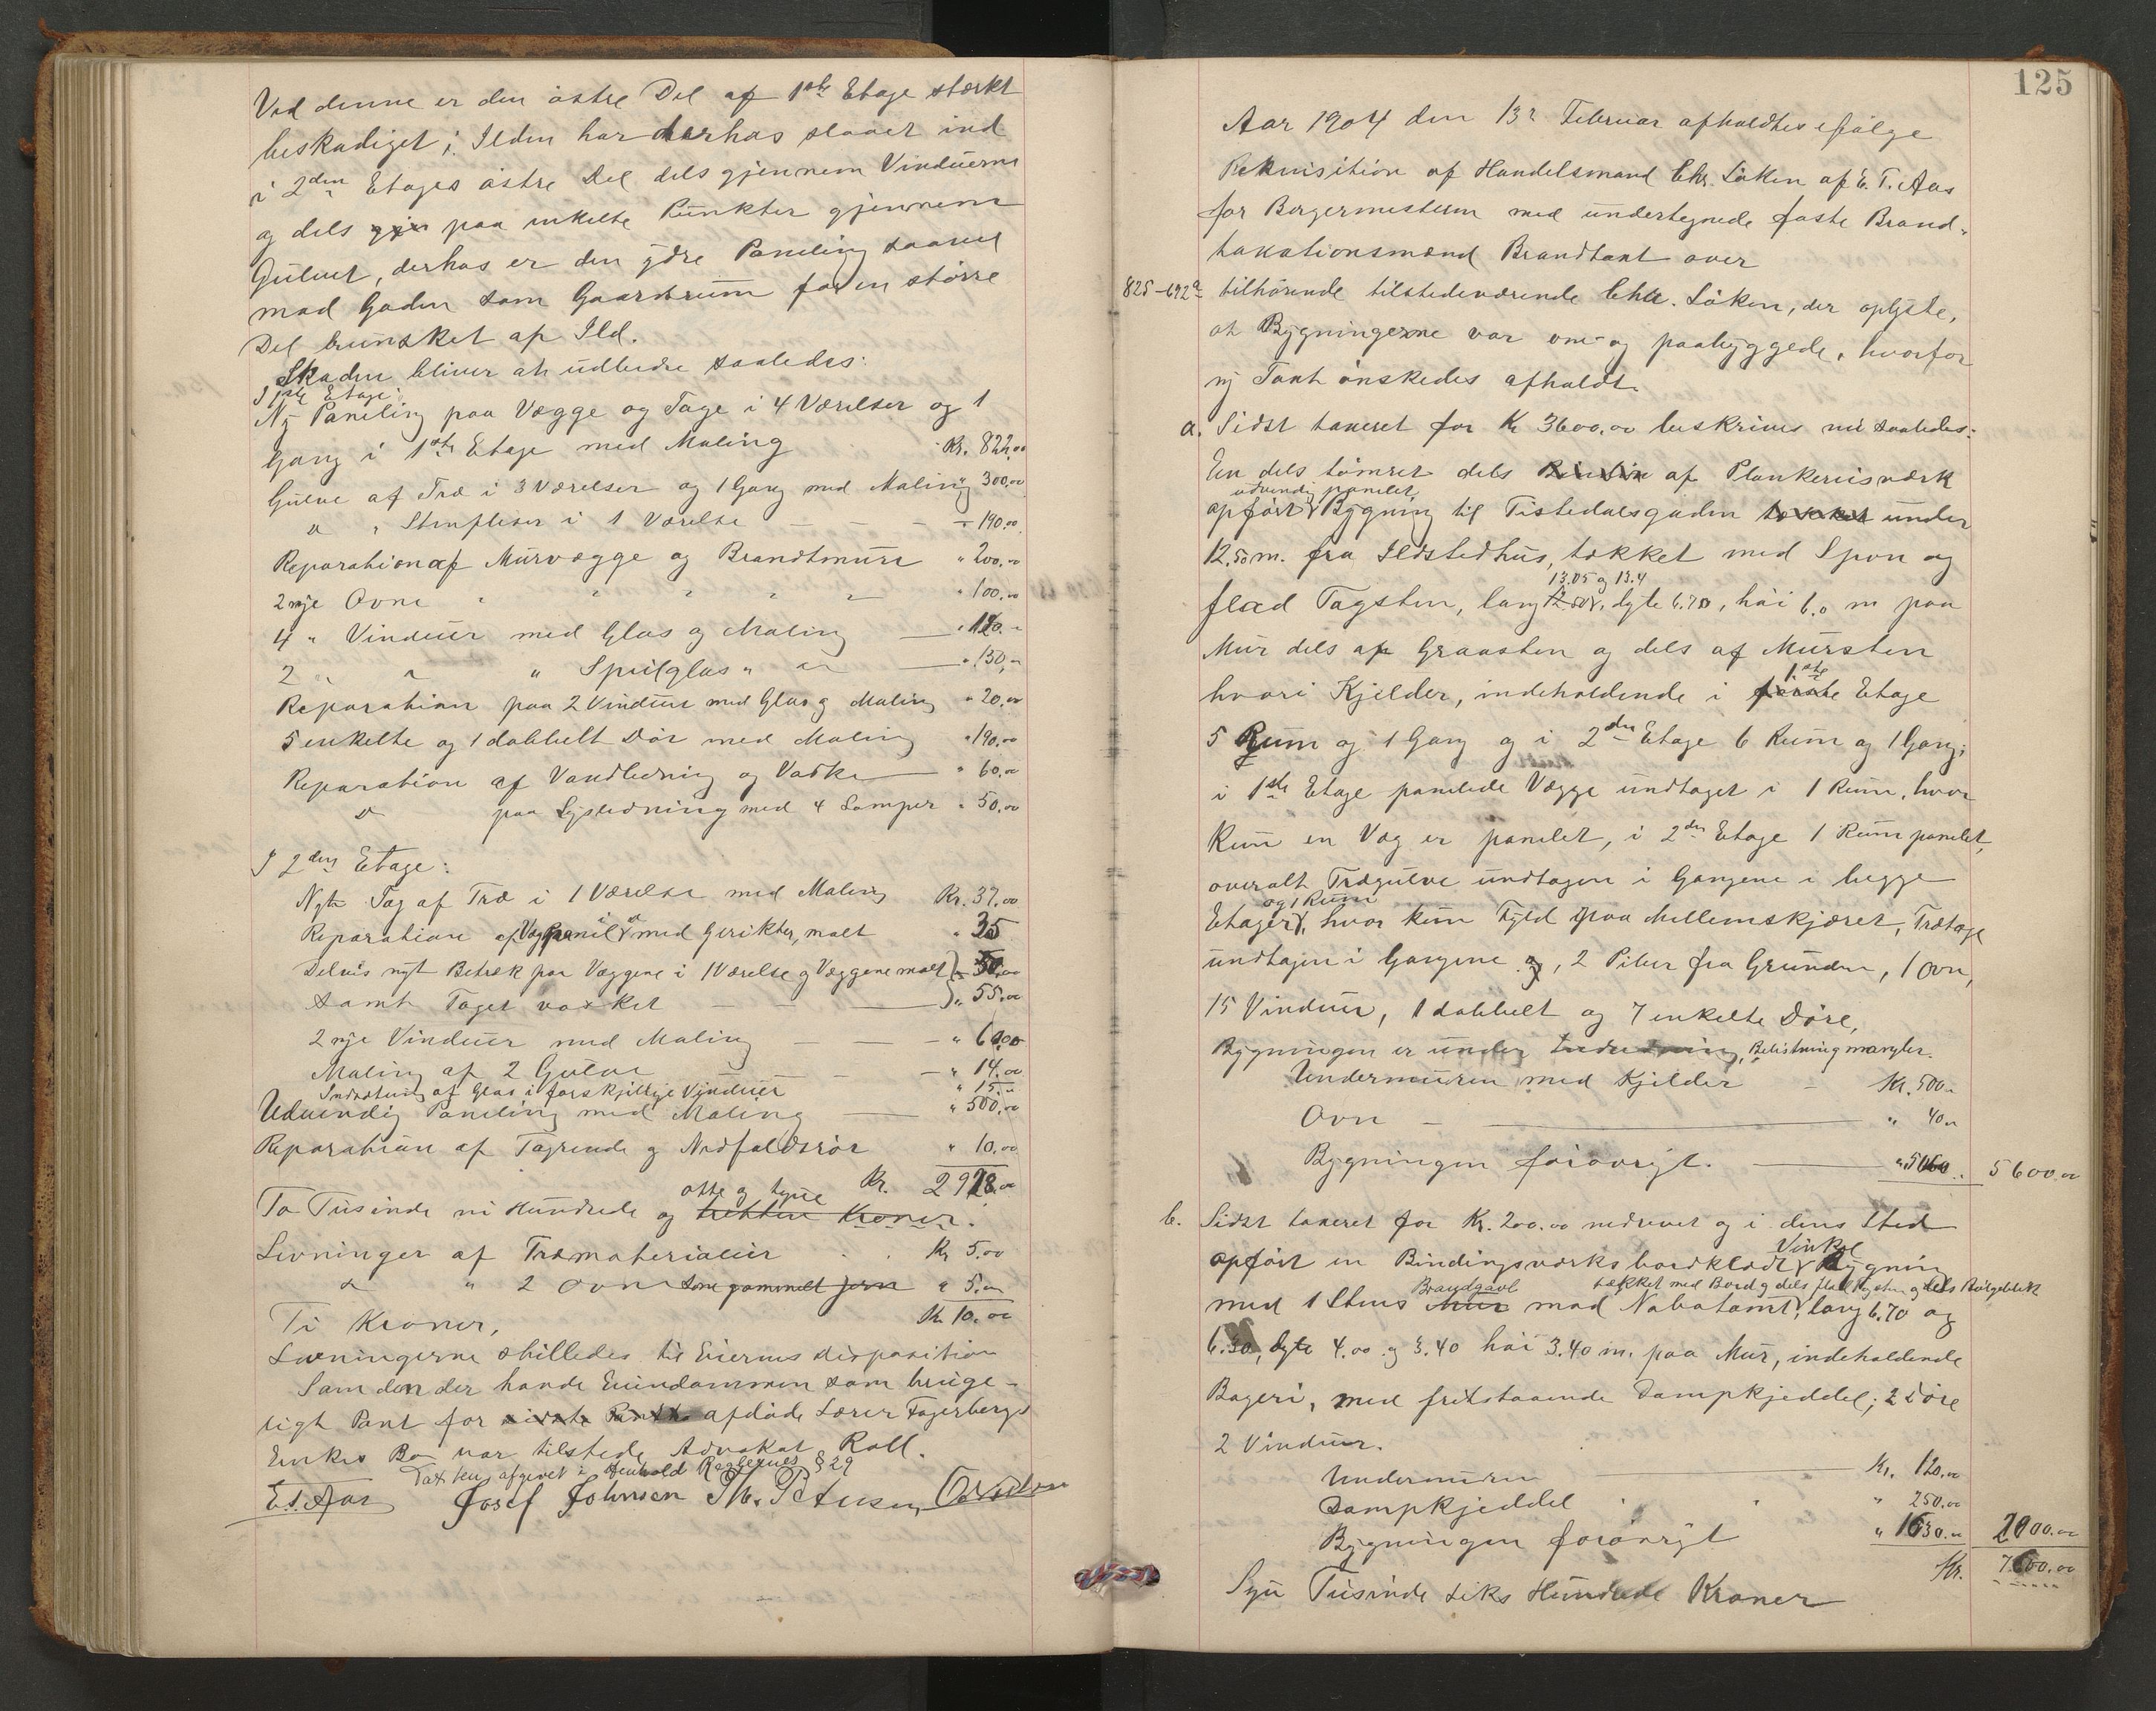 Ved denne er den östre Del af 1ste Etage stærkt
beskadiget; Ilden har derhos slaaet ind
i 2den Etages östre Del dels gjennem Vinduerne
og dels gjen paa enkelte Punkter gjennem
Gulvet, derhos er den ydre Paneling saavel
mod Gaden som Gaardsrum for en större
Del brunsket af Ild.
Skaden bliver at udbedre saaledes:
I 1ste Etage
Ny Paneling paa Vægge og Tage i 4 Værelser og 1
Gang i 1ste Etage med Maling Kr. 822,00
Gulve af Træ i 3 Værelser og 1 Gang med Maling 300,00
" " Stenfliser i 1 Værelse " 190,00
Reparation af Murvægge og Brandtmure " 200,00
2 nye Ovne " 100,00
4 " Vinduer med Glas og Maling " 120.
2 " " " Speilglas " " " 150,
Reparation paa 2 Vinduer med Glas og Maling " 20,00
5 enkelte og 1 dobbelt Dör med Maling " 190,00
Reparation af Vandledning og Vaske " 60,00
" paa Lysledning med 4 Lamper " 50,00
I 2den Etage:
Nyt Tag af Træ i 1 Værelse med Maling Kr. 37,00
Reparation af Vægpanel med Gerikter, malt " 35
Delvis nyt Betræk paa Væggene i 1 Værelse og Væggene malt " 50,00
samt Taget vasket " 55,00
2 nye Vinduer med Maling " 60,00
Maling af 2 Gulve " 14,00
Indsætning af Glas i forskjellige Vinduer " 15,
Udvendig Paneling med Maling " 500,00
Reparation af Tagrende og Nedfaldsrör " 10,00
Kr. 2928,00
otte og tyve
To Tusinde ni Hundrede og tretten Kroner.
Levninger af Træmaterialier Kr 5,00
" " 2 Ovne som gammelt Jern " 5,
Ti Kroner, Kr 10,00
Levningerne stilledes til Eierens disposition
Som den der havde Eiendommen som bruge-
ligt Pant for afdöde Lærer Fagerbergs
Enkes Bo var tilstede Advokat Roll.
Taxten afgivet i Henhold Reglernes § 29
E.T. Aas Josef Johnsen Th. Petersen
125
Aar 1904 den 13de Februar afholdtes efölge
Rekvisition af Handelsmand Chr. Löken af E. T. Aas
for Borgermesteren med undertegnede faste Brand-
taxationsmænd Brandtaxt over
825-692a tilhörende tilstedeværende Chr. Löken, der oplyste,
at Bygningerne var om- og paabyggede, hvorfor
ny Taxt önskedes afholdt.
a. Sidst taxeret for Kr 3600,00 beskrives nu saaledes:
En dels tömret dels af Plankereisværk
udvendig panelet
opfört Bygning til Tistedalsgaden tækket under
12.50 m. fra Ildstedhus, tækket med Spon og
13.05 og 13.4
flad Tagsten, lang 12.50, dyb 6.70, höi 6.0 m paa
Mur dels af Graasten og dels af Mursten
1ste
hvori Kjelder, indeholdende i förste Etage
5 Rum og 1 Gang og i 2den Etage 6 Rum og 1 Gang;
i 1ste Etage panelede Vægge undtaget i 1 Rum, hvor
kun en Væg er panelet, i 2den Etage 1 Rum panelet,
overalt Trægulve undtagen i Gangene i begge
og 1 Rum
Etager, hvor kun Fyld paa Mellemskjæret, Trætage
undtagen i Gangene og, 2 Piber fra Grunden, 1 Ovn,
15 Vinduer, 1 dobbelt og 7 enkelte Döre,
Bygningen er under Indredning, Belistning mangler.
Undermuren med Kjelder Kr. 500,
Ovn " 40,
Bygningen forövrigt. " 5060 5600,00
b. Sidst taxeret for Kr. 200,00 nedrevet og i dens Sted
Vinkel
opfört en Bindingsværks bordklædt Bygning
Brandgavl tækket med Bord og dels flad Tagsten og dels Bölgeblik
med 1 Stens Mur mod Nabotomt, lang 6.70 og
6.30, dyb 4.00 og 3.40 höi 3.40 m. paa Mur, indeholdende
Bageri, med fritstaaende Dampkjeddel; 2 Döre
2 Vinduer.
Undermuren Kr. 120,00
Dampkjeddel " 250,00
Bygningen forövrigt " 1630,00 2000,00
Kr. 7600,00
Syv Tusinde seks Hundrede Kroner